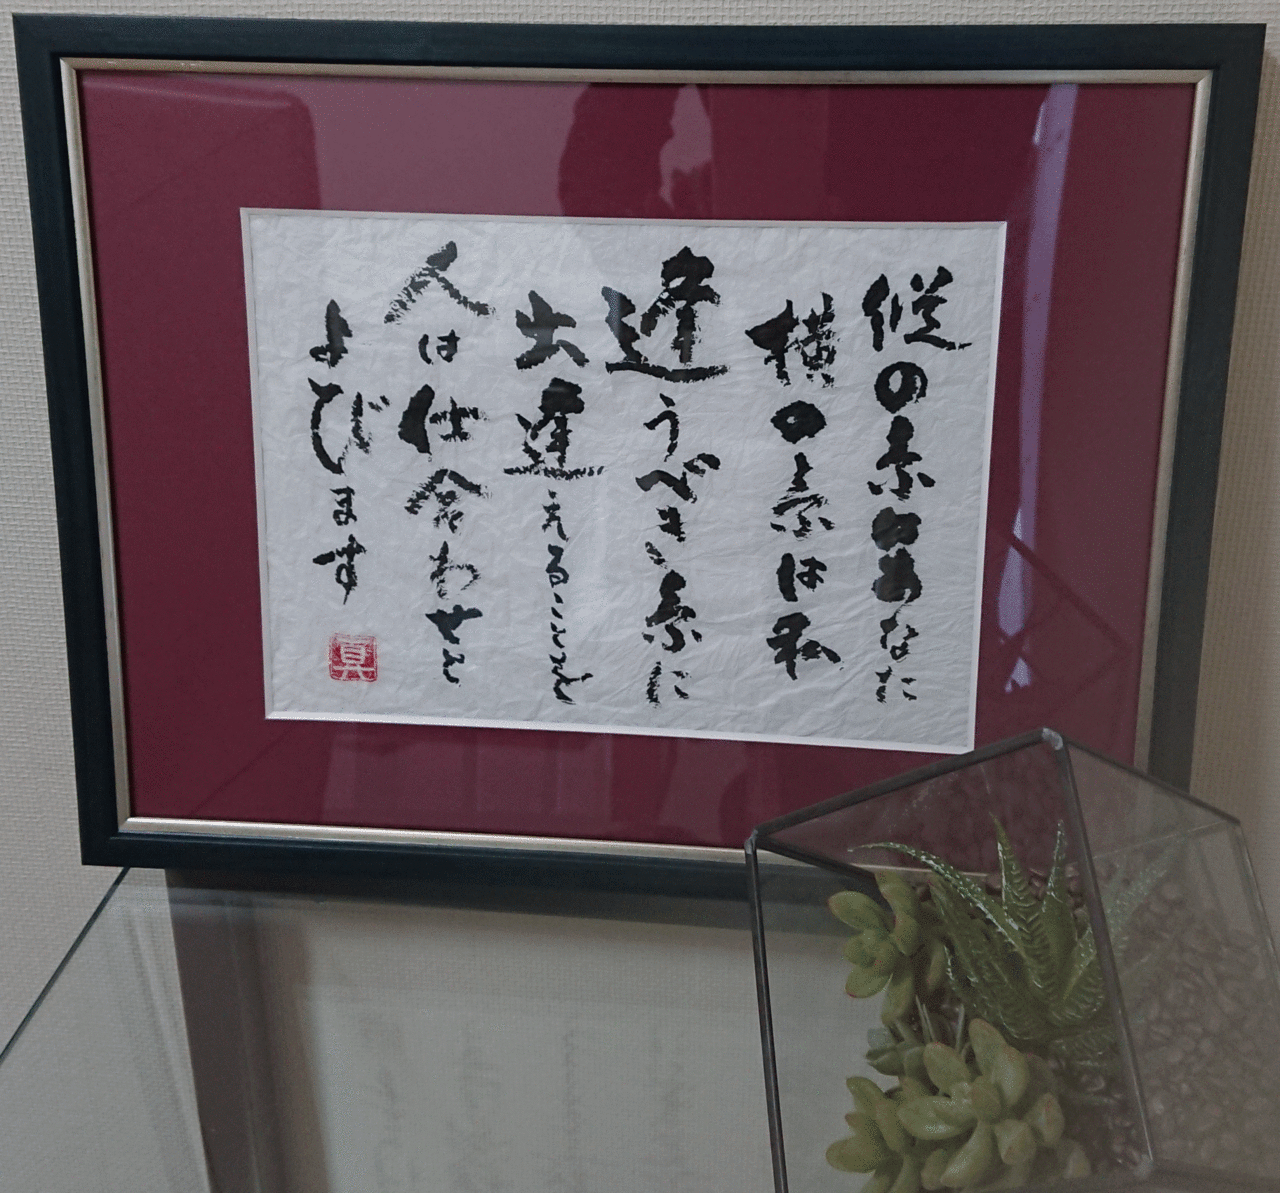 縦の糸はあなた
横の糸は私
逢うべき糸に
出逢えることを
人は仕合わせと
よびます
真